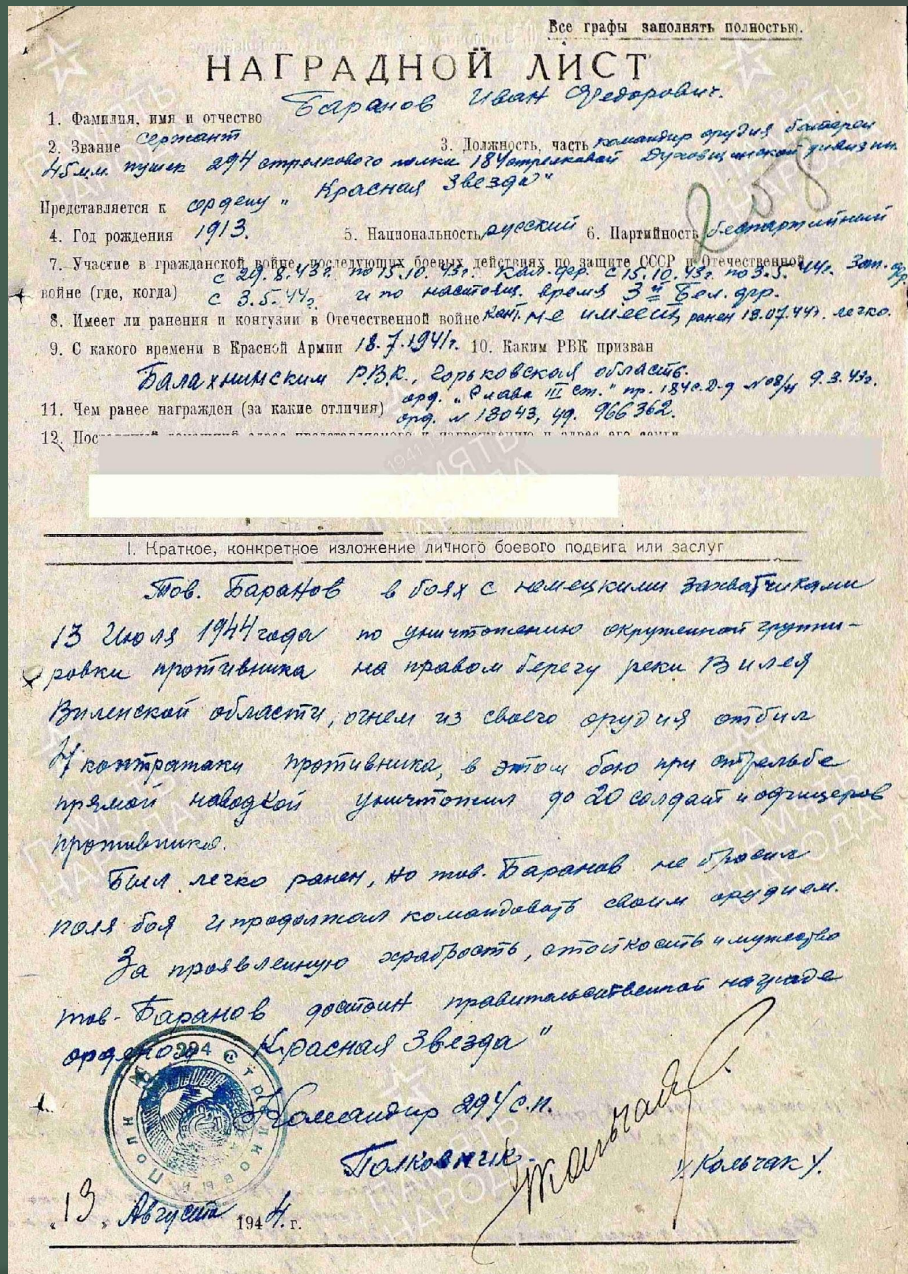 Все графы заполнять полностью.
НАГРАДНОЙ ЛИСТ
1. Фамилия, имя и отчество Баранов Иван Федорович.
2. Звание Сержант 3. Должность, часть командир орудия батареи
45 м.м. пушек 294 стрелкового полка 184 стрелковой Духовщинской дивизии
Представляется к ордену „Красная Звезда"
4. Год рождения 1913. 5. Национальность русский 6. Партийность беспартийный
208
7. Участие в гражданской войне, последующих боевых действиях по защите СССР и Отечественной
войне (где, когда) с 29.8.43г. по 15.10.43г. Кал. фр. с 15.10.43г. по 3.5.44г. Зап. фр.
с 3.5.44г. и по настоящ. время 3й Бел. фр.
8. Имеет ли ранения и контузии в Отечественной войне конт. не имеет, ранен 13.07.44г. легко.
9. С какого времени в Красной Армии 18.7.1941г. 10. Каким РВК призван
Балахнинским РВК, Горьковской область.
11. Чем ранее награжден (за какие отличия) орд. „Слава III ст." пр. 184 с.д-д №08/н 9.3.43г.
орд. № 18043, уд. 966362.
12.
I. Краткое, конкретное изложение личного боевого подвига или заслуг
Тов. Баранов в боях с немецкими захватчиками
13 Июля 1944 года по уничтожению окруженной группи-
ровки противника на правом берегу реки Вилея
Виленской области, огнем из своего орудия отбил
4 контратаки противника, в этом бою при стрельбе
прямой наводкой уничтожил до 20 солдат и офицеров
противника.
Был легко ранен, но тов. Баранов не бросил
поля боя и продолжал командовать своим орудием.
За проявленную храбрость, стойкость и мужество
тов. Баранов достоин правительственной награде
орденом „Красная Звезда"
Командир 294 с.п.
Полковник
/Кольчак/.
294 Стрелковый Полк
„13" Августа 1944 г.
ПАМЯТЬ НАРОДА